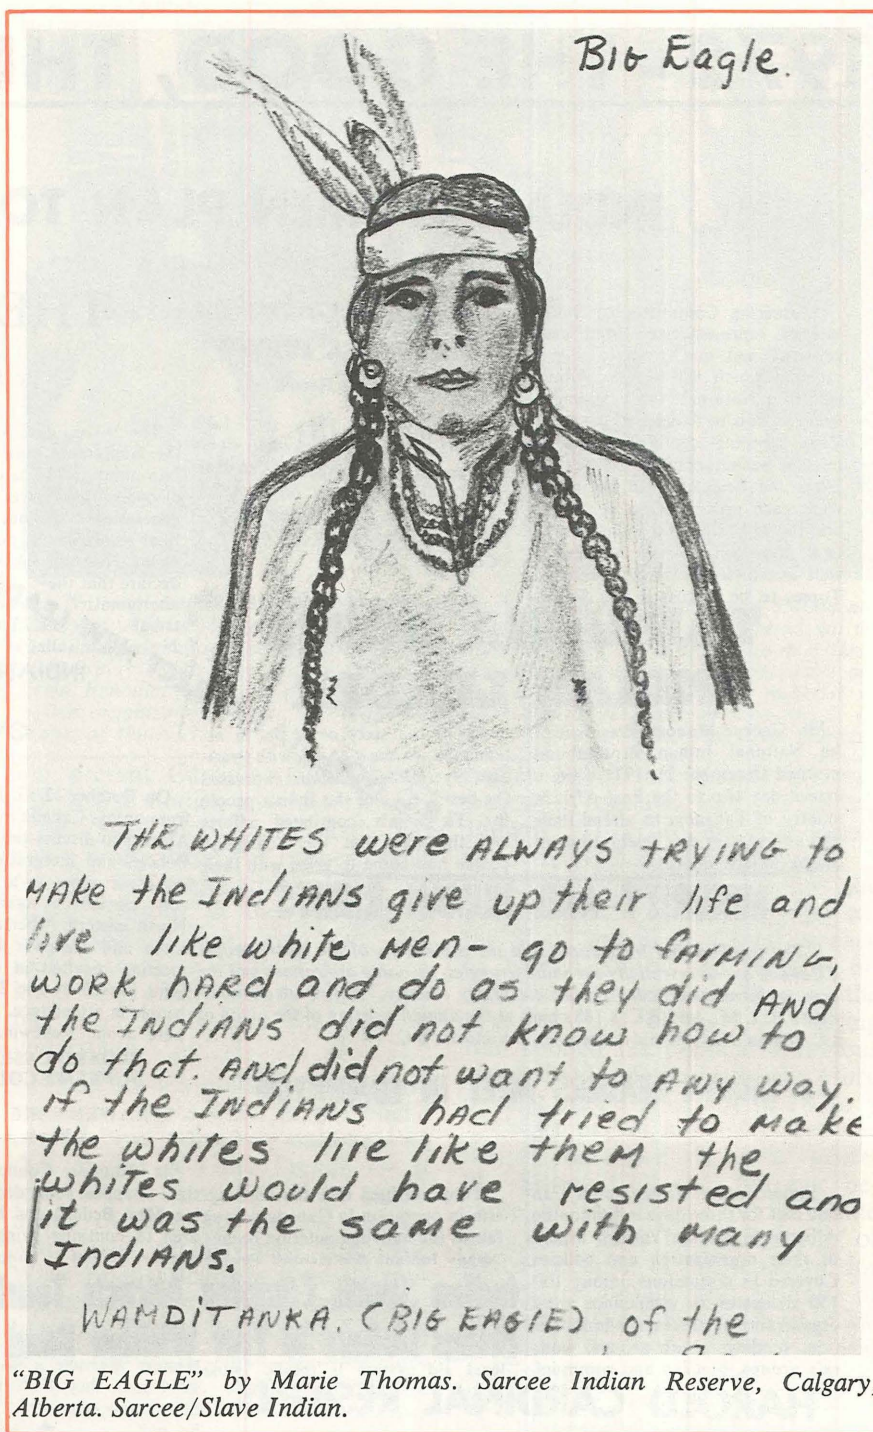 Big Eagle.
THE WHITES were ALWAYS tRYING to
MAKe the INdIANS give up their life and
live like white Men- go to fARMING,
WORK hARd and do as they did AND
the INdIANS did not know how to
do that. ANd did not want to ANY way.
if the INdIANS hAd tried to Make
the whites live like theM the
whites would have resisted and
it was the saMe with Many
INdIANS.
WAMDITANKA. (BIG EAGlE) of the
"BIG EAGLE" by Marie Thomas. Sarcee Indian Reserve, Calgary,
Alberta. Sarcee/Slave Indian.